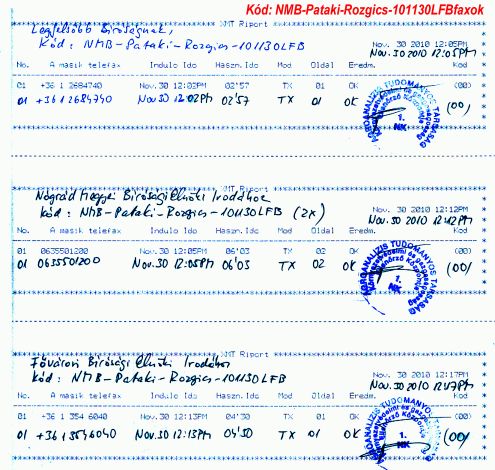 Kód: NMB-Pataki-Rozgics-101130LFBfaxok
XMT Riport
Legfelsőbb Bíróságnak,
Kód: NMB-Pataki-Rozgics-101130LFB
Nov. 30 2010 12:05PM
Nov. 30 2010 12:05PM
No. A masik telefax Indulo Ido Haszn.Ido Mod Oldal Eredm. Kod
01 +36 1 2684740 Nov.30 12:02PM 02'57 TX 01 OK (00)
01 +36 1 2684740 Nov.30 12:02PM 02'57 TX 01 OK (00)
AGROANALÍZIS TUDOMÁNYOS TÁRSASÁG
1.
NK
XMT Riport
Nógrád Megyei Bírósági Elnöki Irodához
Kód: NMB-Pataki-Rozgics-101130LFB (2x)
Nov. 30 2010 12:12PM
Nov. 30 2010 12:12PM
No. A masik telefax Indulo Ido Haszn.Ido Mod Oldal Eredm. Kod
01 0635501200 Nov.30 12:05PM 06'03 TX 02 OK (00)
01 0635501200 Nov.30 12:05PM 06'03 TX 02 OK (00)
AGROANALÍZIS TUDOMÁNYOS TÁRSASÁG
1.
NK
XMT Riport
Fővárosi Bírósági Elnöki Irodához
Kód: NMB-Pataki-Rozgics-101130LFB
Nov. 30 2010 12:17PM
Nov. 30 2010 12:17PM
No. A masik telefax Indulo Ido Haszn.Ido Mod Oldal Eredm. Kod
01 +36 1 354 6040 Nov.30 12:13PM 04'30 TX 01 OK (00)
01 +36 1 3546040 Nov.30 12:13PM 04'30 TX 01 OK (00)
AGROANALÍZIS TUDOMÁNYOS TÁRSASÁG
1.
NK